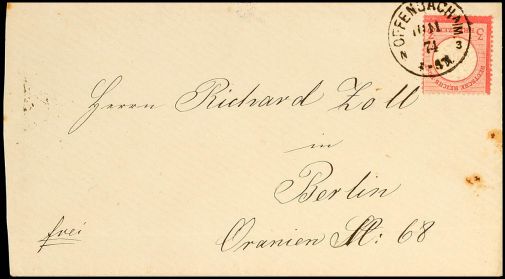 OFFENBACH A/M.
JUN
74
N 3
Herrn Richard Zoll
in
Berlin
frei
Oranien St: 68